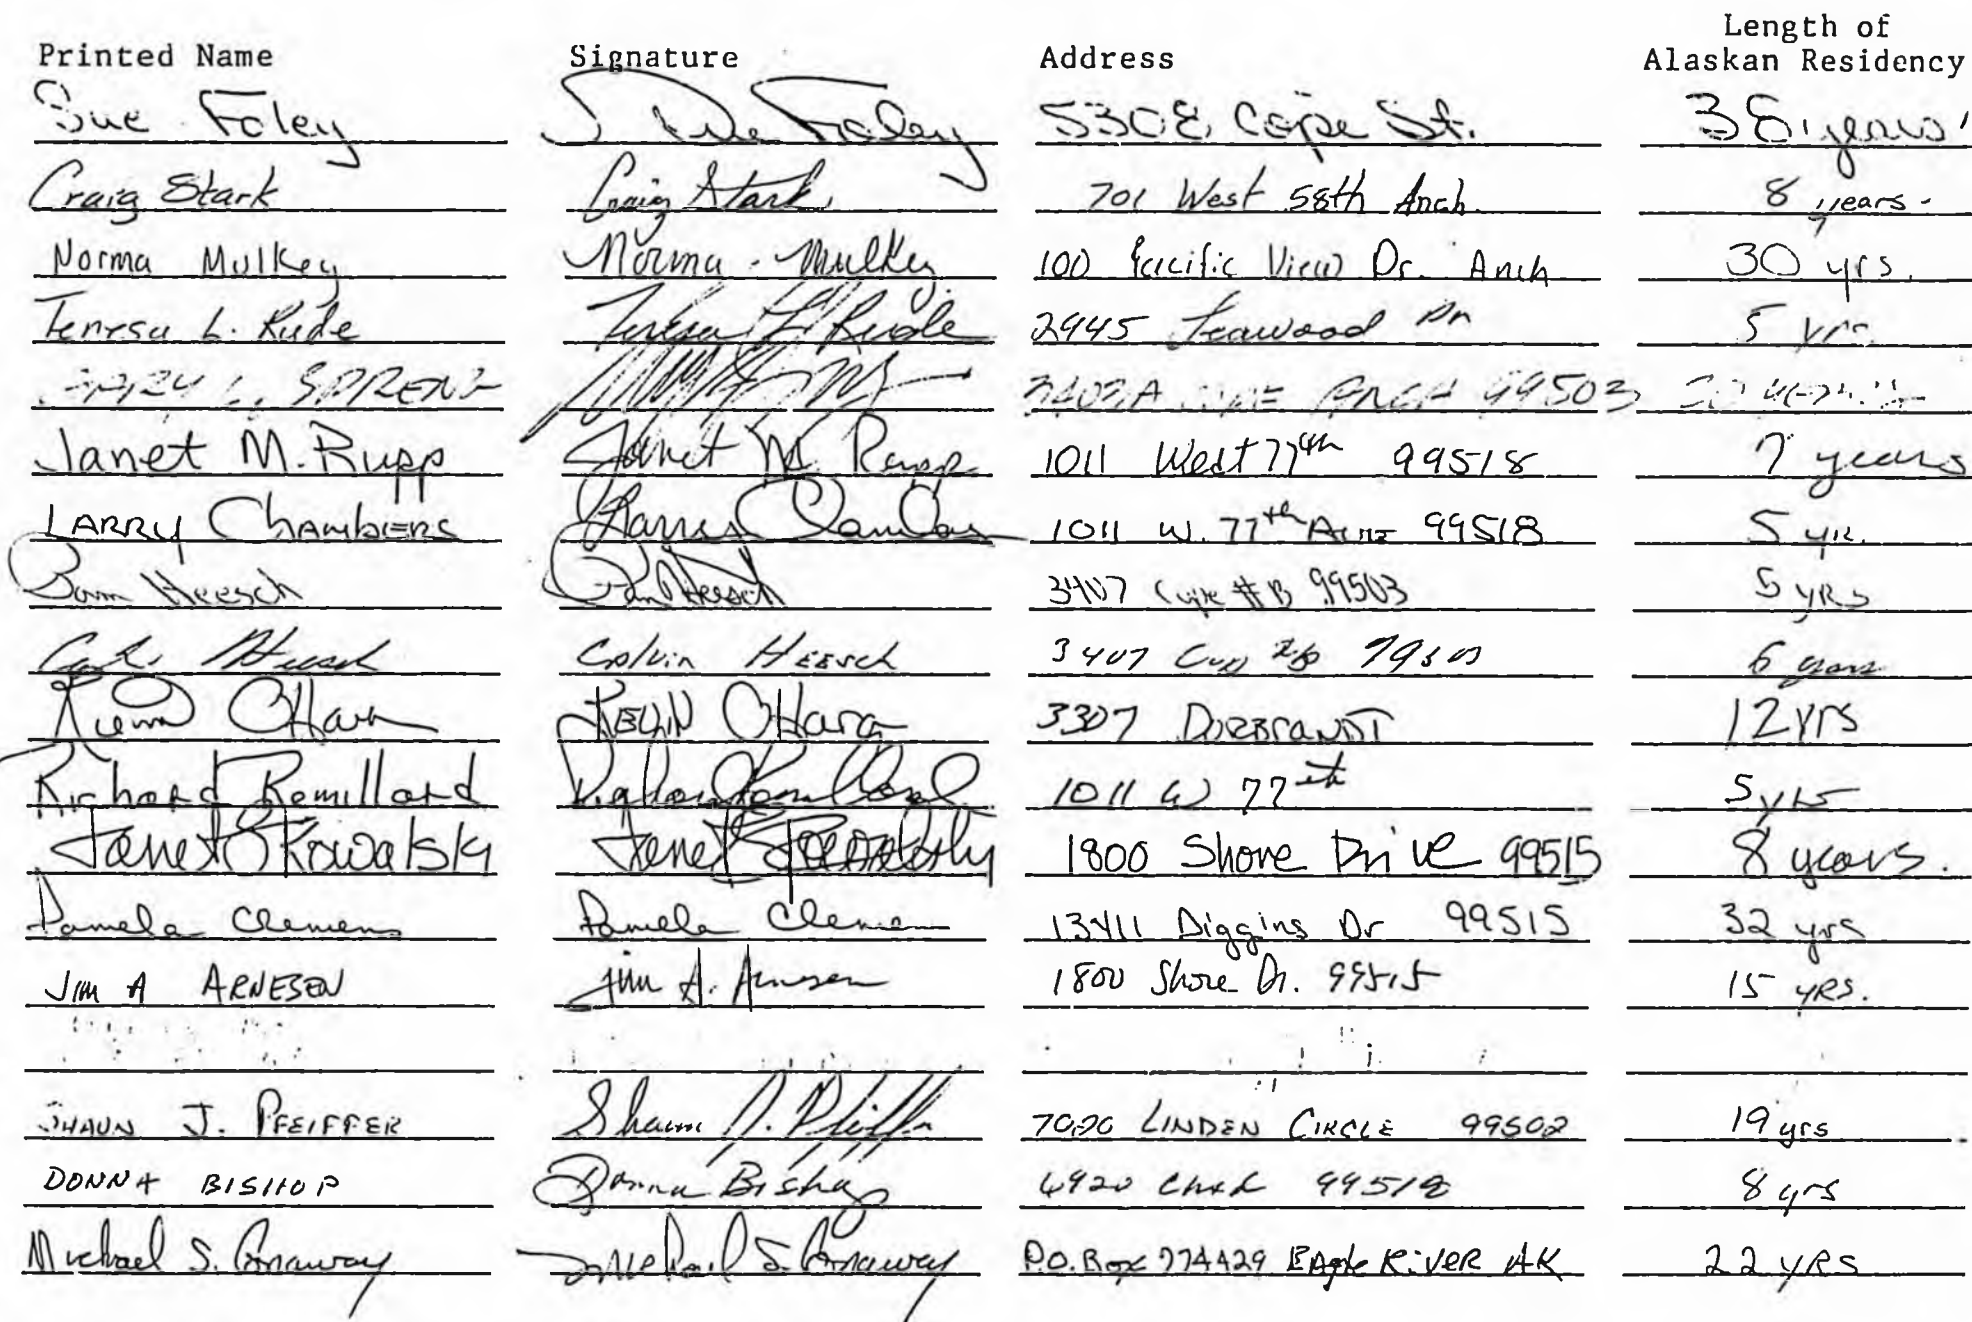 Length of
Printed Name Signature Address Alaskan Residency
Sue Foley Sue Foley 5308 Cope St. 38 years
Craig Stark Craig Stark 701 West 58th Anch 8 years
Norma Mulkey Norma Mulkey 100 Pacific View Dr. Anch 30 yrs.
Teresa L. Rude Teresa L. Rude 2945 Dr 5 yrs
L. 99503
Janet M. Rupp Janet M. Rupp 1011 West 77th 99518 7 years
LARRY CHAMBERS 1011 W. 77th 99518 5 yr.
Heesch Pam Heesch 3407 Cope #B 99503 5 YRS
Heesch Colvin Heesch 3407 99503 6 years
O'Hara KEVIN O'Hara 3307 12 YRS
Richard Remillard Richard Remillard 1011 W 77th 5 yrs
Janet Kowalski Janet Kowalski 1800 Shore Drive 99515 8 years.
Pamela Clemens Pamela Clemens 13411 Diggins Dr 99515 32 yrs
JIM A ARNESEN Jim A. Arnesen 1800 Shore Dr. 99515 15 YRS.
SHAUN J. PFEIFFER Shaun J. Pfeiffer 7020 LINDEN CIRCLE 99502 19 yrs
DONNA BISHOP Donna Bishop 6920 99518 8 yrs
Michael S. Conaway Michael S. Conaway P.O. Box 774429 Eagle River AK 22 YRS